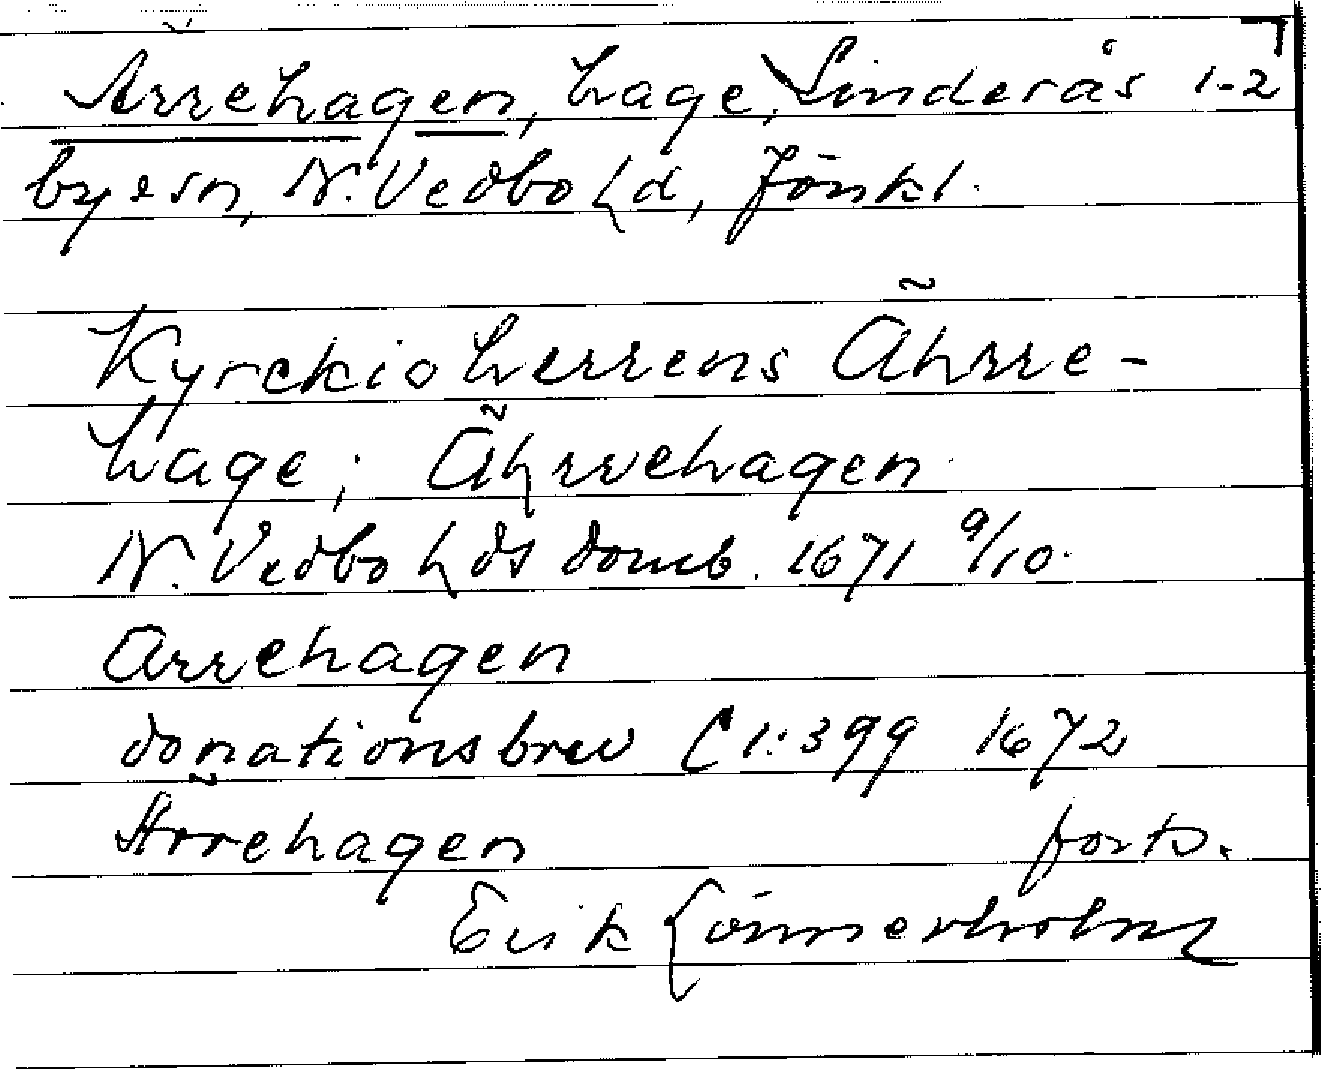 Ärrehagen, hage, Linderås 1-2
by o sn, N. Vedbo hd, Jönk l.
Kyrckioherrens Ährre-
hage; Ährrehagen
N. Vedbo hds domb. 1671 9/10.
Arrehagen
donationsbrev C 1:399 1672
Ärrehagen forts.
Erik Lönnerholm